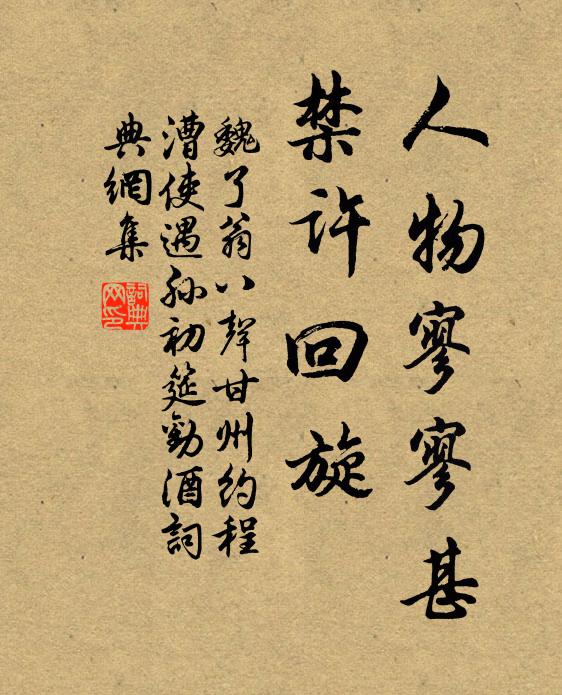 人物寥寥甚
禁許回旋
魏了翁八聲甘州約程
漕使遇孫初筵勸酒詞
典網集
詞典網印